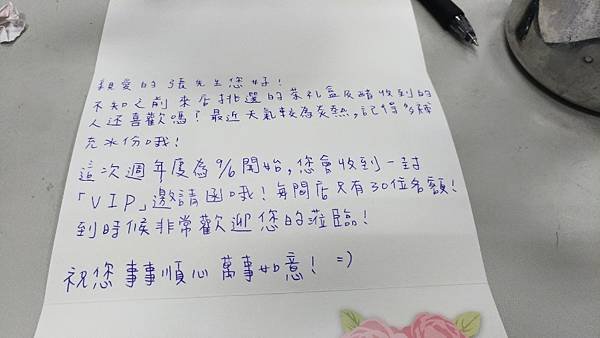 親愛的張先生您好!
不知之前來店挑選的茶礼盒 收到的
人还喜歡嗎?最近天氣較為炎熱,記得多補
充水份哦!
這次週年慶為9/6開始,您會收到一封
「VIP」邀請函哦!每間店只有30位名額!
到時候非常歡迎您的蒞臨!
祝您事事順心 萬事如意! =)